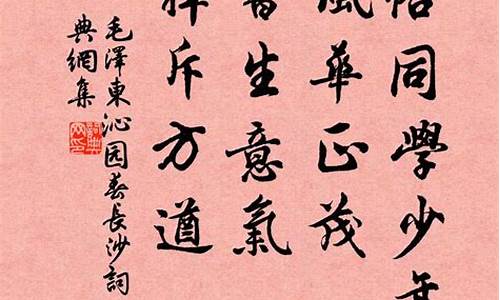 恰同學少年
風華正茂
書生意氣
揮斥方遒
毛澤東沁园春長沙詞
典網集